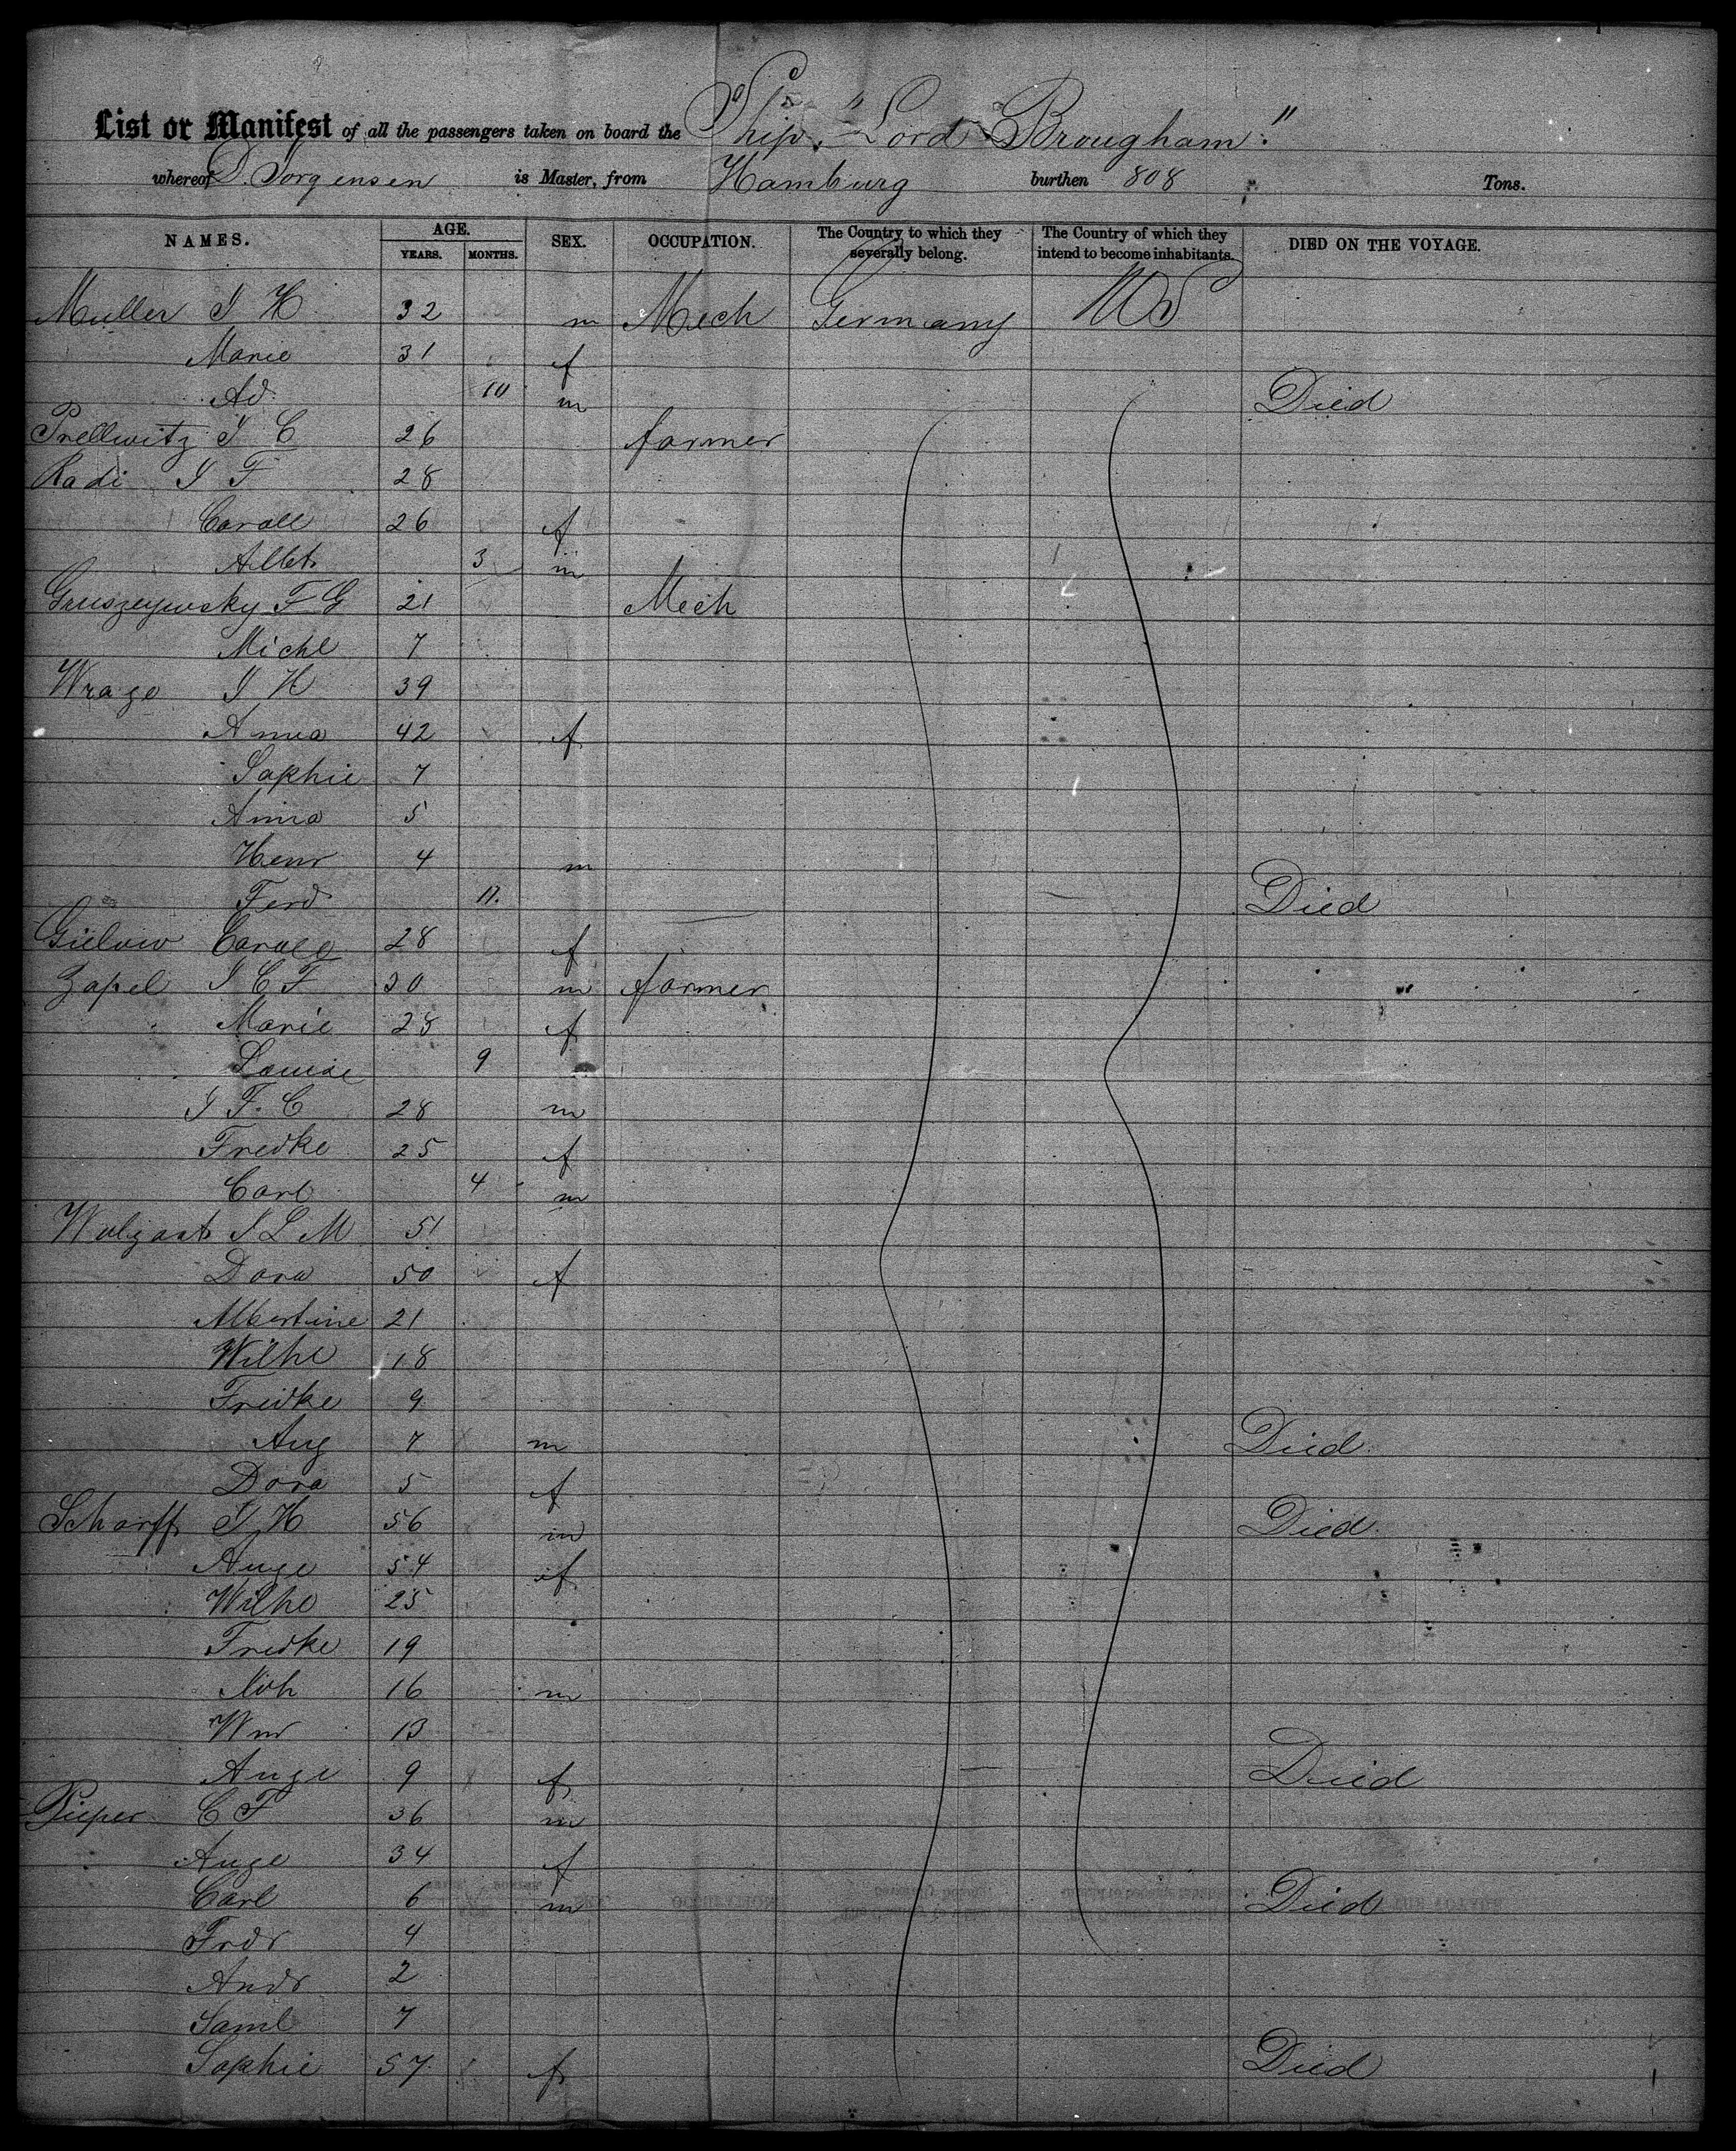 List or Manifest of all the passengers taken on board the Ship, "Lord Brougham."
whereof D. Jorgensen is Master, from Hamburg burthen 808 Tons.
NAMES. AGE. SEX. OCCUPATION. The Country to which they severally belong. The Country of which they intend to become inhabitants. DIED ON THE VOYAGE.
YEARS. MONTHS.
Muller J H 32 m Mech Germany US
Marie 31 f
Ad. 10 m Died
Prellwitz J C 26 farmer
Radi J F 28
Caroll 26 f
Albt 3 m
Gruszeyewsky F G 21 Mech
Michl 7
Wrage J H 39
Anna 42 f
Sophie 7
Anna 5
Henr 4 m
Ferd 11. Died
Gielow Carole 28 f
Zapel J C F 30 m farmer
Marie 28 f
Louise 9
J F. C 28 m
Fredke 25 f
Carl 4 m
Wolgast J L M 51
Dora 50 f
Albertine 21
Wilhe 18
Fredke 9
Aug 7 m Died
Dora 5 f
Scharff J H 56 m Died
Auge 54 f
Wilhe 25
Fredke 19
Joh 16 m
Wm 13
Auge 9 f Died
Pieper C F 36 m
Auge 34 f
Carl 6 m Died
Frdr 4
Andr 2
Saml 7
Sophie 57 f Died